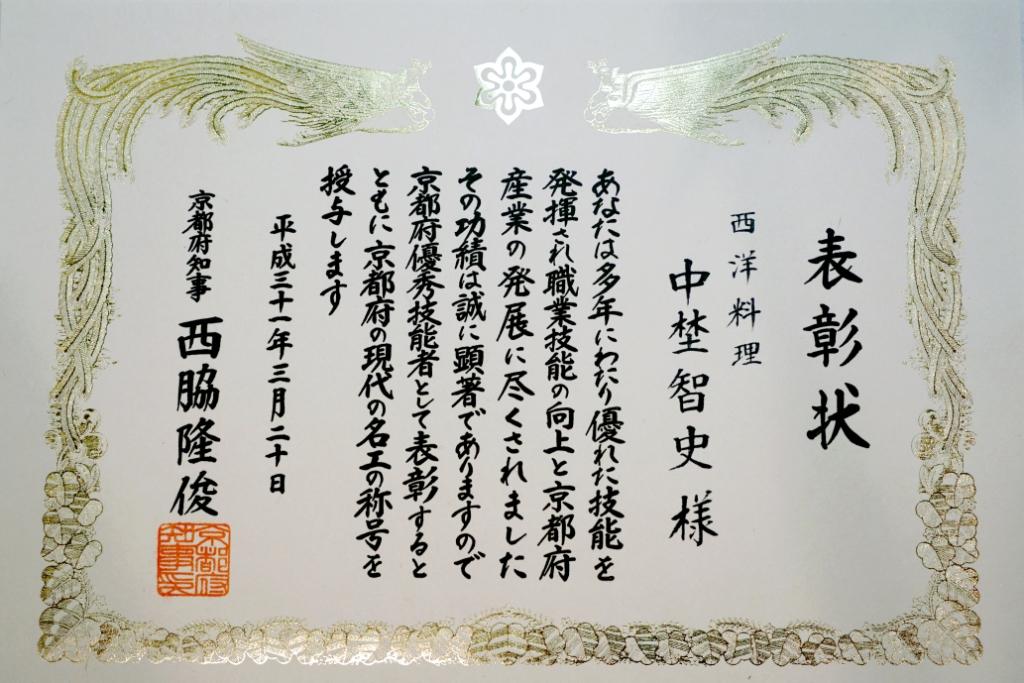 表彰状
西洋料理
中埜智史様
あなたは多年にわたり優れた技能を
発揮され職業技能の向上と京都府
産業の発展に尽くされました
その功績は誠に顕著でありますので
京都府優秀技能者として表彰すると
ともに京都府の現代の名工の称号を
授与します
平成三十一年三月二十日
京都府知事 西脇隆俊
京都府知事之印